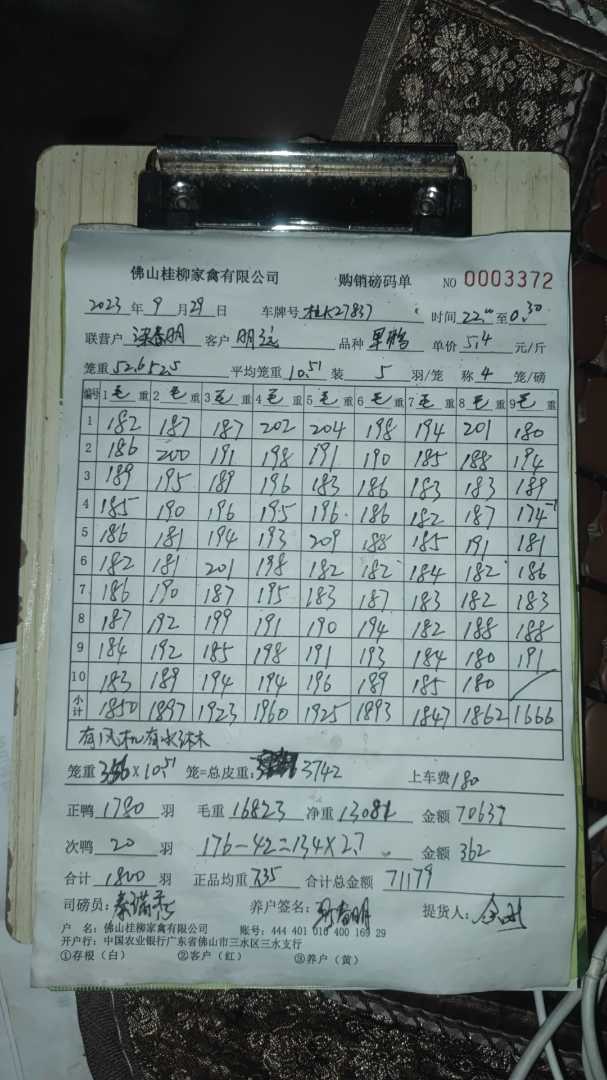 佛山桂柳家禽有限公司 购销磅码单 NO 0003372
2023 年 9 月 29 日 车牌号 桂K27837 时间 22.00 至 0.30
联营户 客户 明远 品种 单价 5.4 元/斤
笼重 52.6 52.5 平均笼重 10.51 装 5 羽/笼 称 4 笼/磅
编号 1 毛 重 2 毛 重 3 毛 重 4 毛 重 5 毛 重 6 毛 重 7 毛 重 8 毛 重 9 毛 重
1 182 187 187 202 204 198 194 201 180
2 186 200 191 198 191 190 185 188 194
3 189 195 189 196 183 186 183 183 189
4 185 190 196 195 196 186 182 187 174-1
5 186 181 194 193 209 188 185 191 181
6 182 181 201 198 182 182 184 182 186
7 186 190 187 195 183 187 183 182 183
8 187 192 199 191 190 194 182 188 188
9 184 192 185 198 191 193 184 180 191
10 183 189 194 194 196 189 185 180
小计 1850 1897 1923 1960 1925 1893 1847 1862 1666
有风机有水淋
笼重 356 x 10.51 笼=总皮重: 3742 上车费 180
正鸭 1780 羽 毛重 16823 净重 13081 金额 70637
次鸭 20 羽 176-42=134X2.7 金额 362
合计 1800 羽 正品均重 7.35 合计总金额 71179
司磅员: 养户签名: 提货人:
户 名: 佛山桂柳家禽有限公司 账号: 444 401 010 400 169 29
开户行: 中国农业银行广东省佛山市三水区三水支行
①存根(白) ②客户(红) ③养户(黄)